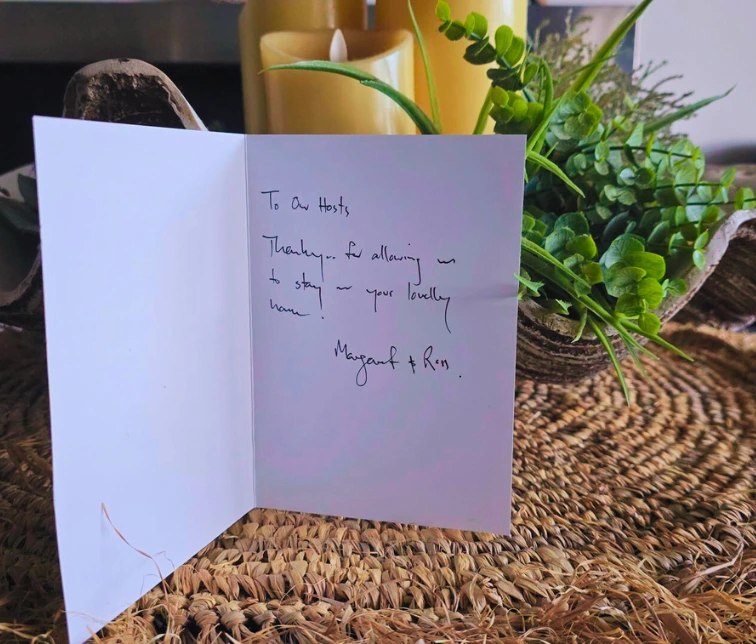 To Our Hosts
Thankyou for allowing us
to stay in your lovelly
home!
Margaret & Ross.